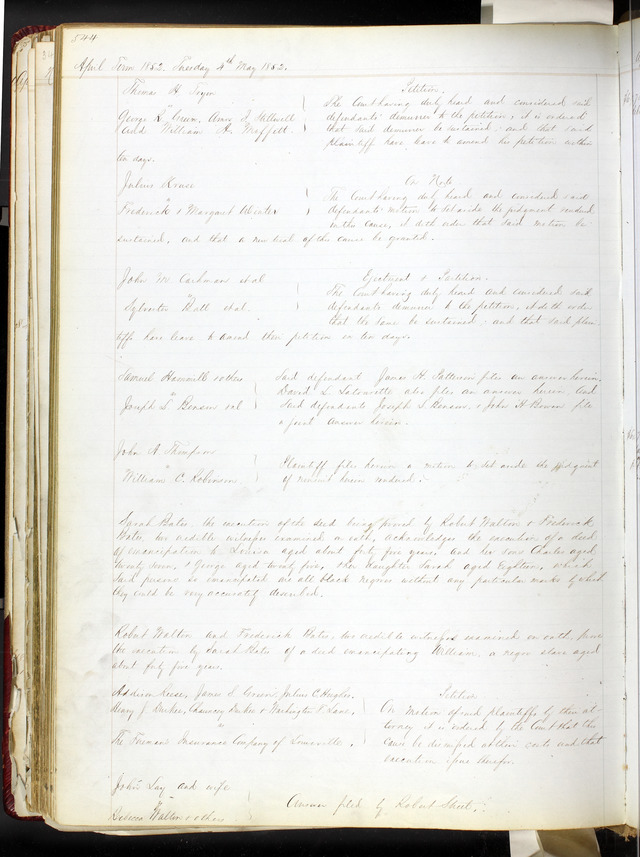 544
April Term 1852. Tuesday 4th May 1852.
Thomas H.
vs
George R. Green, Amos J. Stillwell
and William H. Moffett
Petition.
The Court having duly heard and considered said
defendants demurrer to the petition, it is ordered
that said demurrer be sustained, and that said
plaintiff have leave to amend his petition within
ten days.
Julius Kruse
vs
Frederick & Margaret
On Note
The Court having duly heard and considered said
defendants motion to set aside the judgment rendered
in this cause, it doth order that said motion be
sustained, and that a new trial of this cause be granted.
John W. Cashman et al
vs
Sylvester Hall et al.
Ejectment & Partition.
The Court having duly heard and considered said
defendants demurrer to the petition, doth order
that the same be sustained, and that said plain
tiff have leave to amend their petition in ten days.
Samuel Haworth & others
vs
Joseph S. Benson & al
Said defendant James H. Patterson files an answer herein.
David L. Latourette also files an answer herein And
Said defendants Joseph S. Benson & John H. Bowen file
a joint answer herein.
John A. Thompson
vs
William C. Robinson
Plaintiff files herein a motion to set aside the judgment
of herein rendered.
Sarah Bates, the execution of the deed being proved by Robert Walton & Frederick
Bates, two credible witnesses examined on oath, acknowledges the execution of a deed
of emancipation to Louisa aged about forty five years, and her sons Charles aged
twenty seven, & George aged twenty five, & her daughter Sarah aged Eighteen, which
said persons so emancipated are all black negroes without any particular marks by which
they could be very accurately described.
Robert Walton and Frederick Bates, two credible witnesses examined on oath, prove
the execution by Sarah Bates of a deed emancipating William, a negro slave aged
about forty five years.
Addison Reese, James S. Green, Julius C.
Henry J. Durkee, Chauncey Durkee & Washington F. Lane,
vs
The Firemens Insurance Company of Louisville.
Petition
On motion of said plaintiffs by their at-
torney it is ordered by the Court that this
cause be dismissed at their costs and that
execution issue therefor.
John Lay and wife
vs
Rebecca Walton & others
Answer filed by Robert